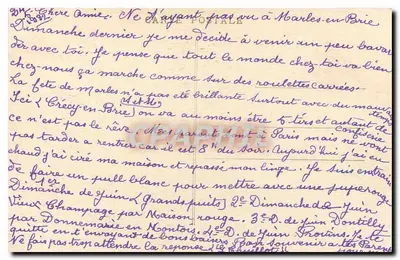 Chère amie. Ne t'ayant pas vu à Marles-en-Brie
CARTE POSTALE
Dimanche dernier je me décide à venir un peu bavar
der avec toi. Je pense que tout le monde chez toi va bien
chez nous ça marche comme sur des roulettes carrées.
La fête de Marles n'a pas été brillante surtout avec du mauvais temps
Ici (Crécy en Brie S et M) on va au moins être 6 tirs et autant de confiserie
ce n'est pas le rêve. Mes parents sont à Paris mais ne vont
pas tarder a rentrer car il est 8h du soir. Aujourd'hui j'ai eu
chaud j'ai ciré ma maison et repassé mon linge. Je suis en train
de faire un pull blanc pour mettre avec une jupe rouge
Dimanche de Juin (Grandspuits) 2e Dimanche de Juin
Vieux Champage par Maison rouge. 3e D. de Juin Dontilly
par Donnemarie en Montois. 4e D. de Juin Provins. Je te
quitte en t'envoyant de bons baisers. Bon souvenir aux Parents
Ne fais pas trop attendre la réponse